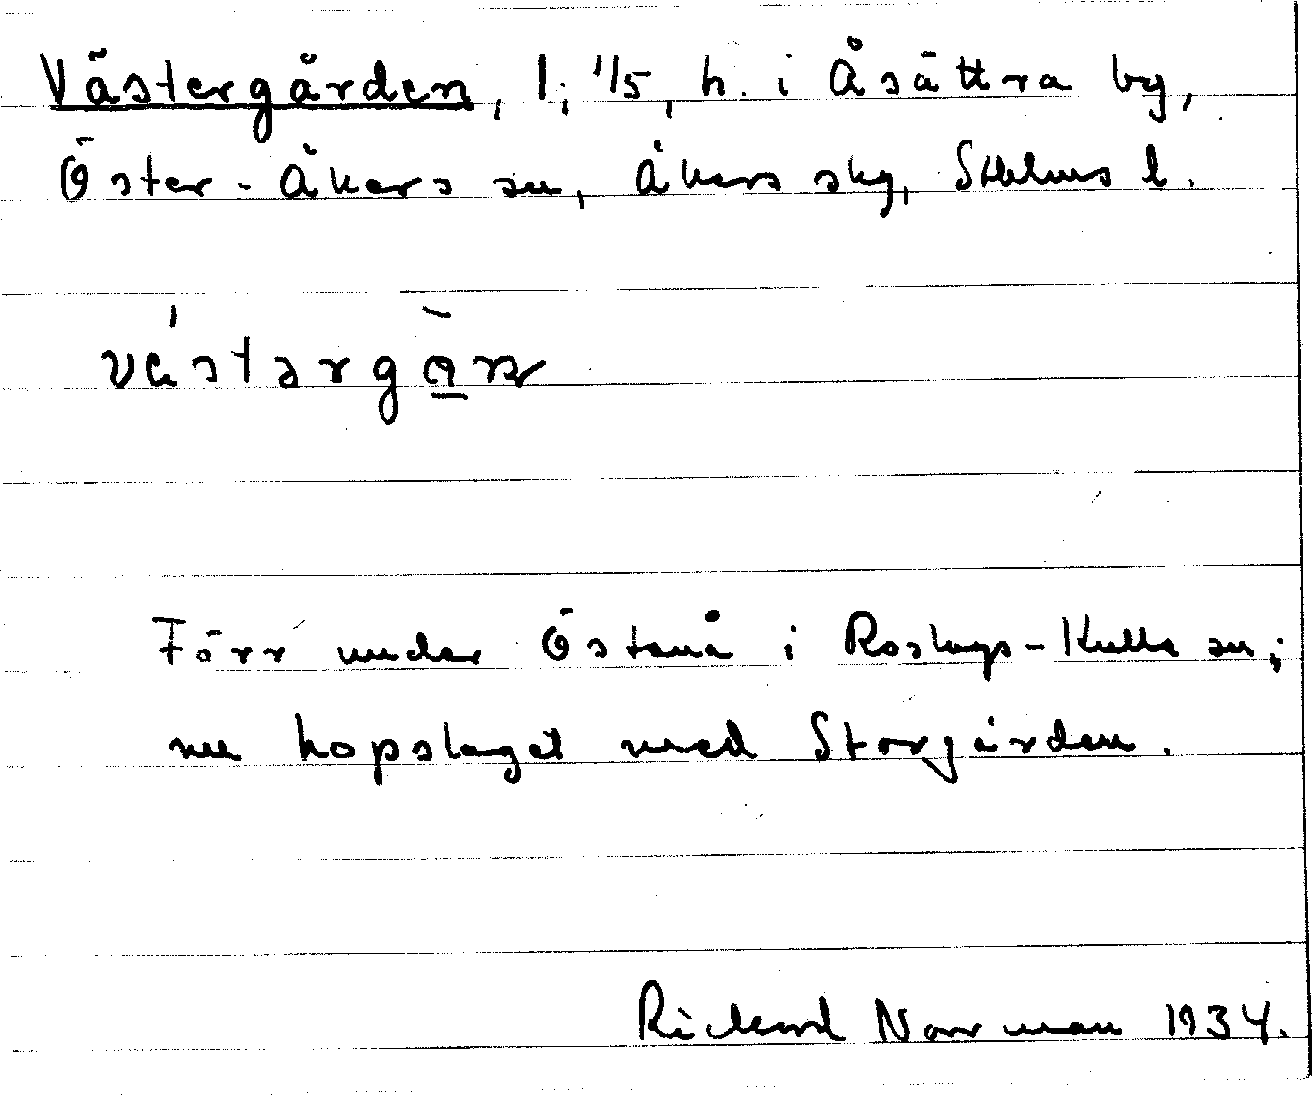 Västergården, 1; 1/5, h. i Åsättra by,
Öster-Åkers sn, Åkers skg, Sthlms l.
Förr under Östanå i Roslags-Kulla sn;
nu hopslaget med Storgården.
Rickard Norrman 1934.